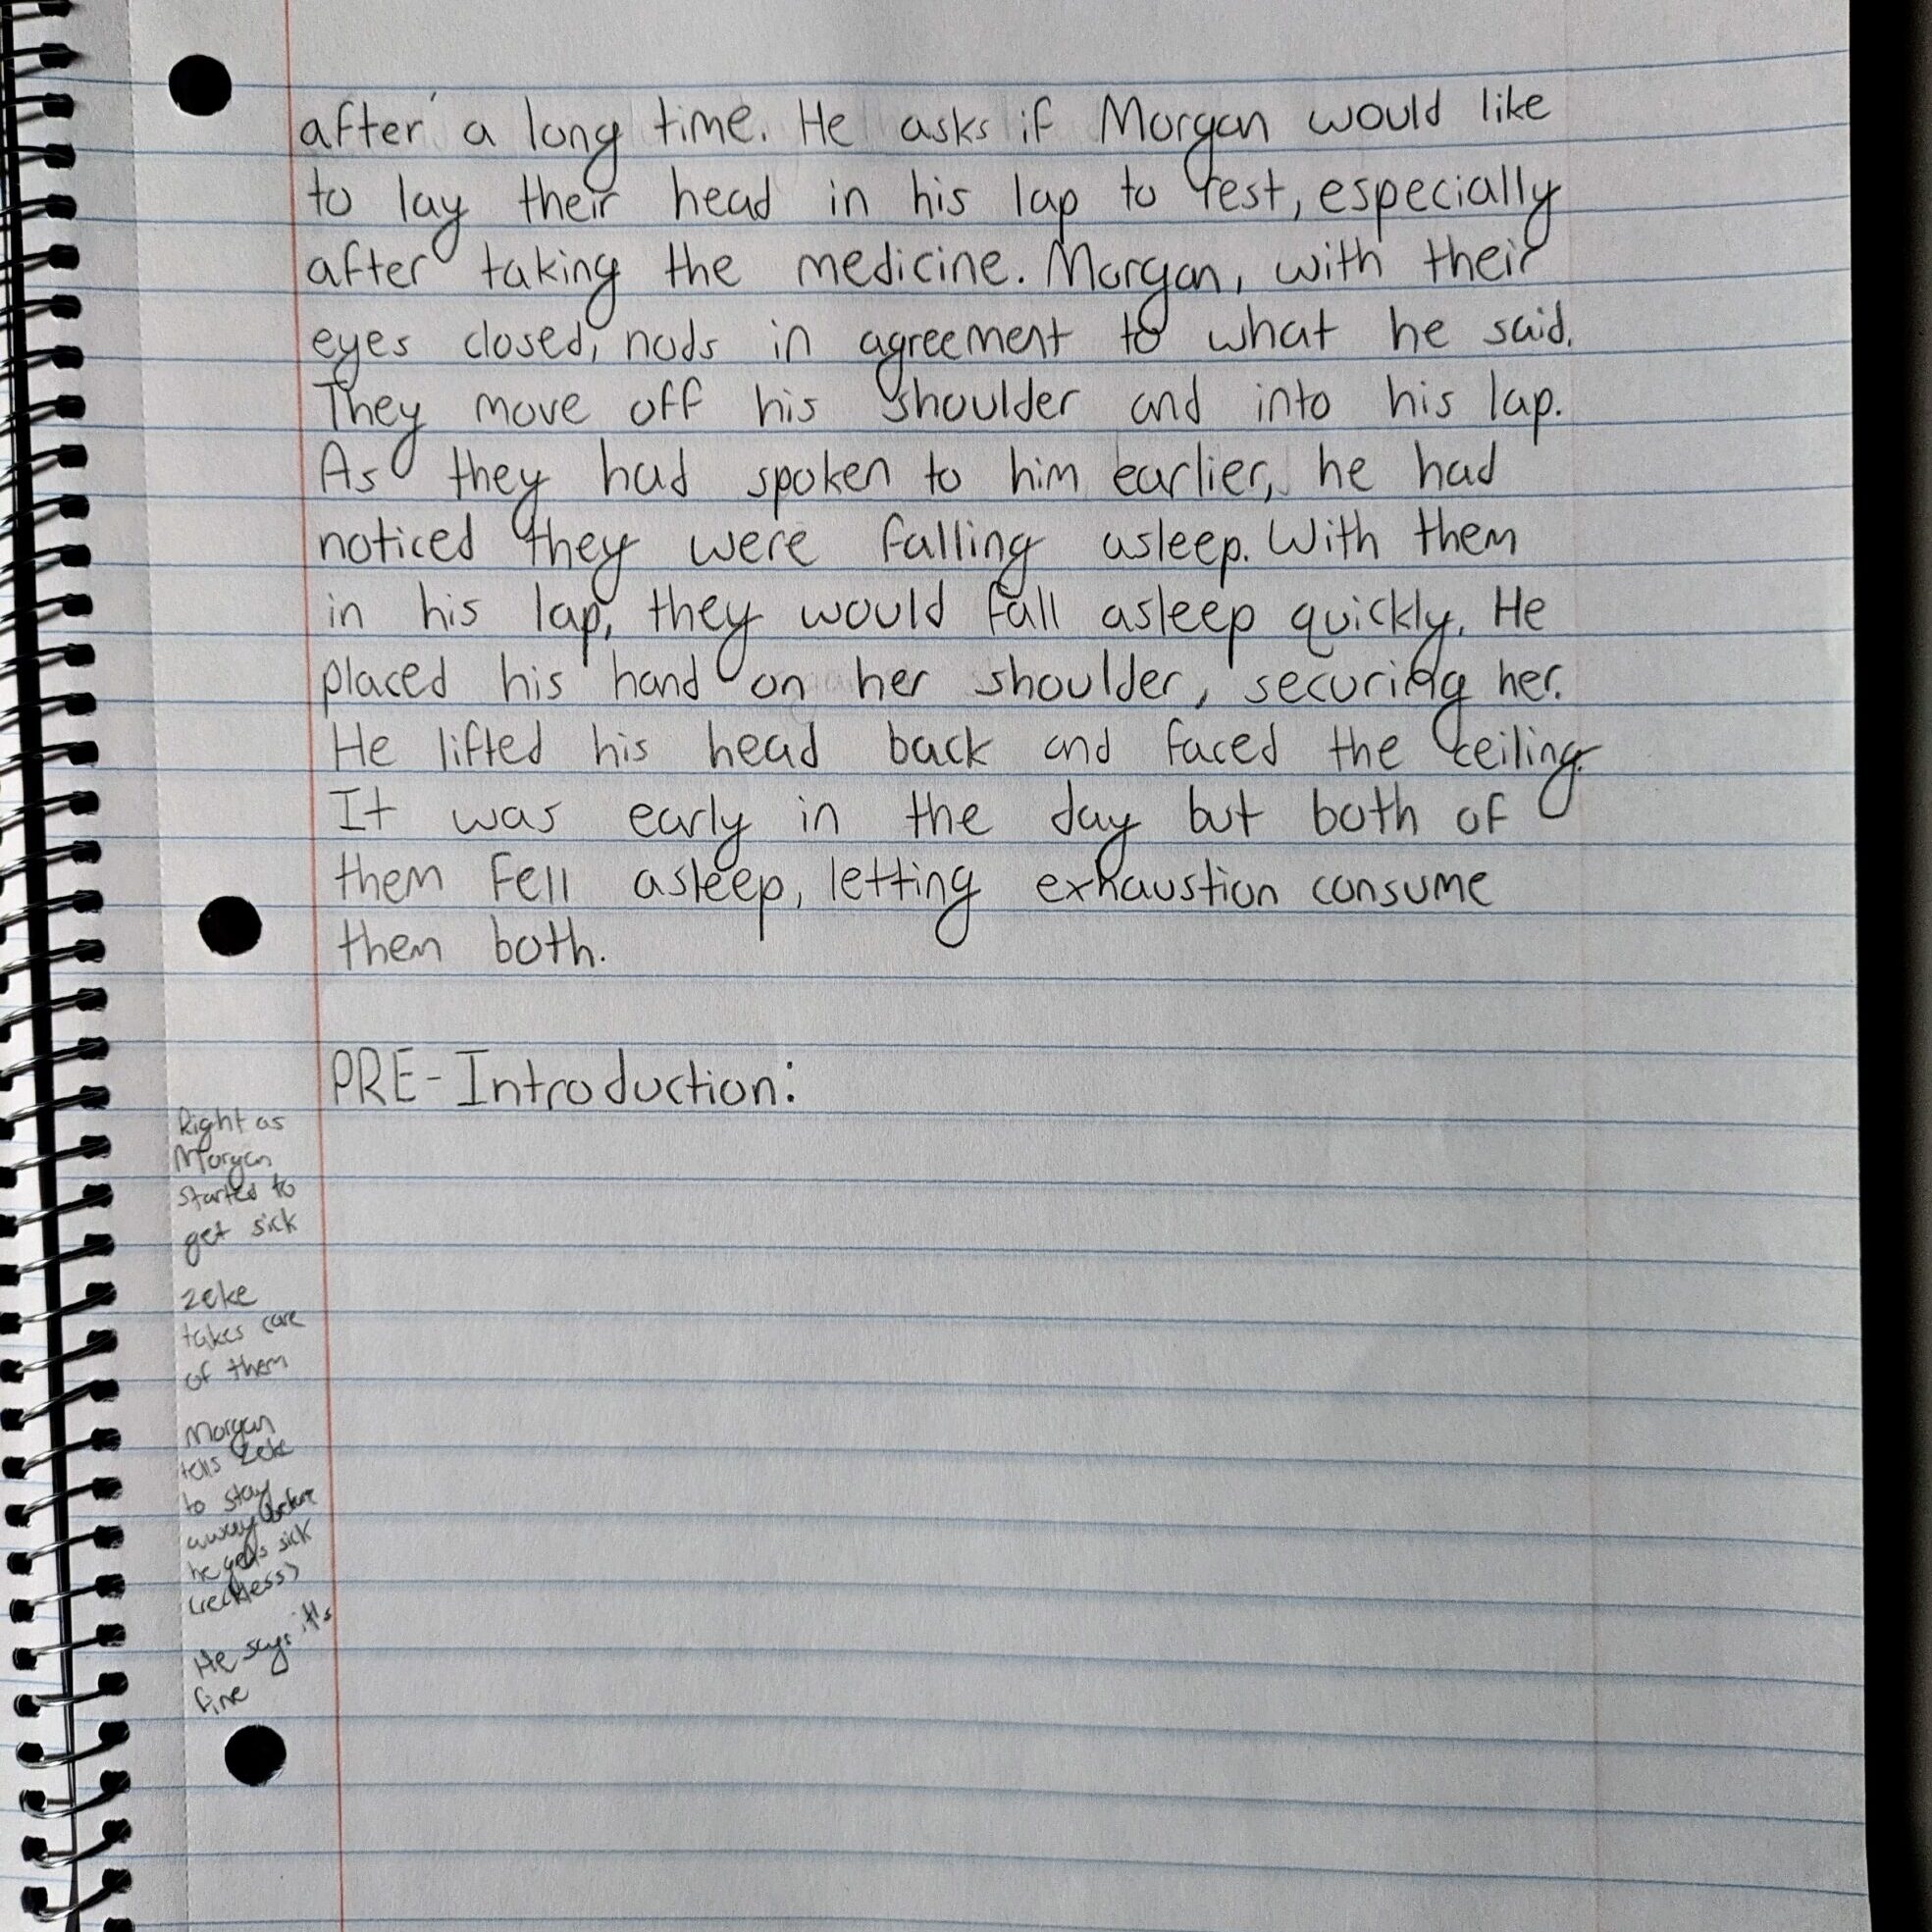 after a long time. He asks if Morgan would like
to lay their head in his lap to rest, especially
after taking the medicine. Morgan, with their
eyes closed, nods in agreement to what he said.
They move off his shoulder and into his lap.
As they had spoken to him earlier, he had
noticed they were falling asleep. With them
in his lap, they would fall asleep quickly. He
placed his hand on her shoulder, securing her.
He lifted his head back and faced the ceiling.
It was early in the day but both of
them fell asleep, letting exhaustion consume
them both.
PRE-Introduction:
Right as
Morgan
started to
get sick
zeke
takes care
of them
Morgan
tells Zeke
to stay
away before
he gets sick
(reckless)
He says it's
fine